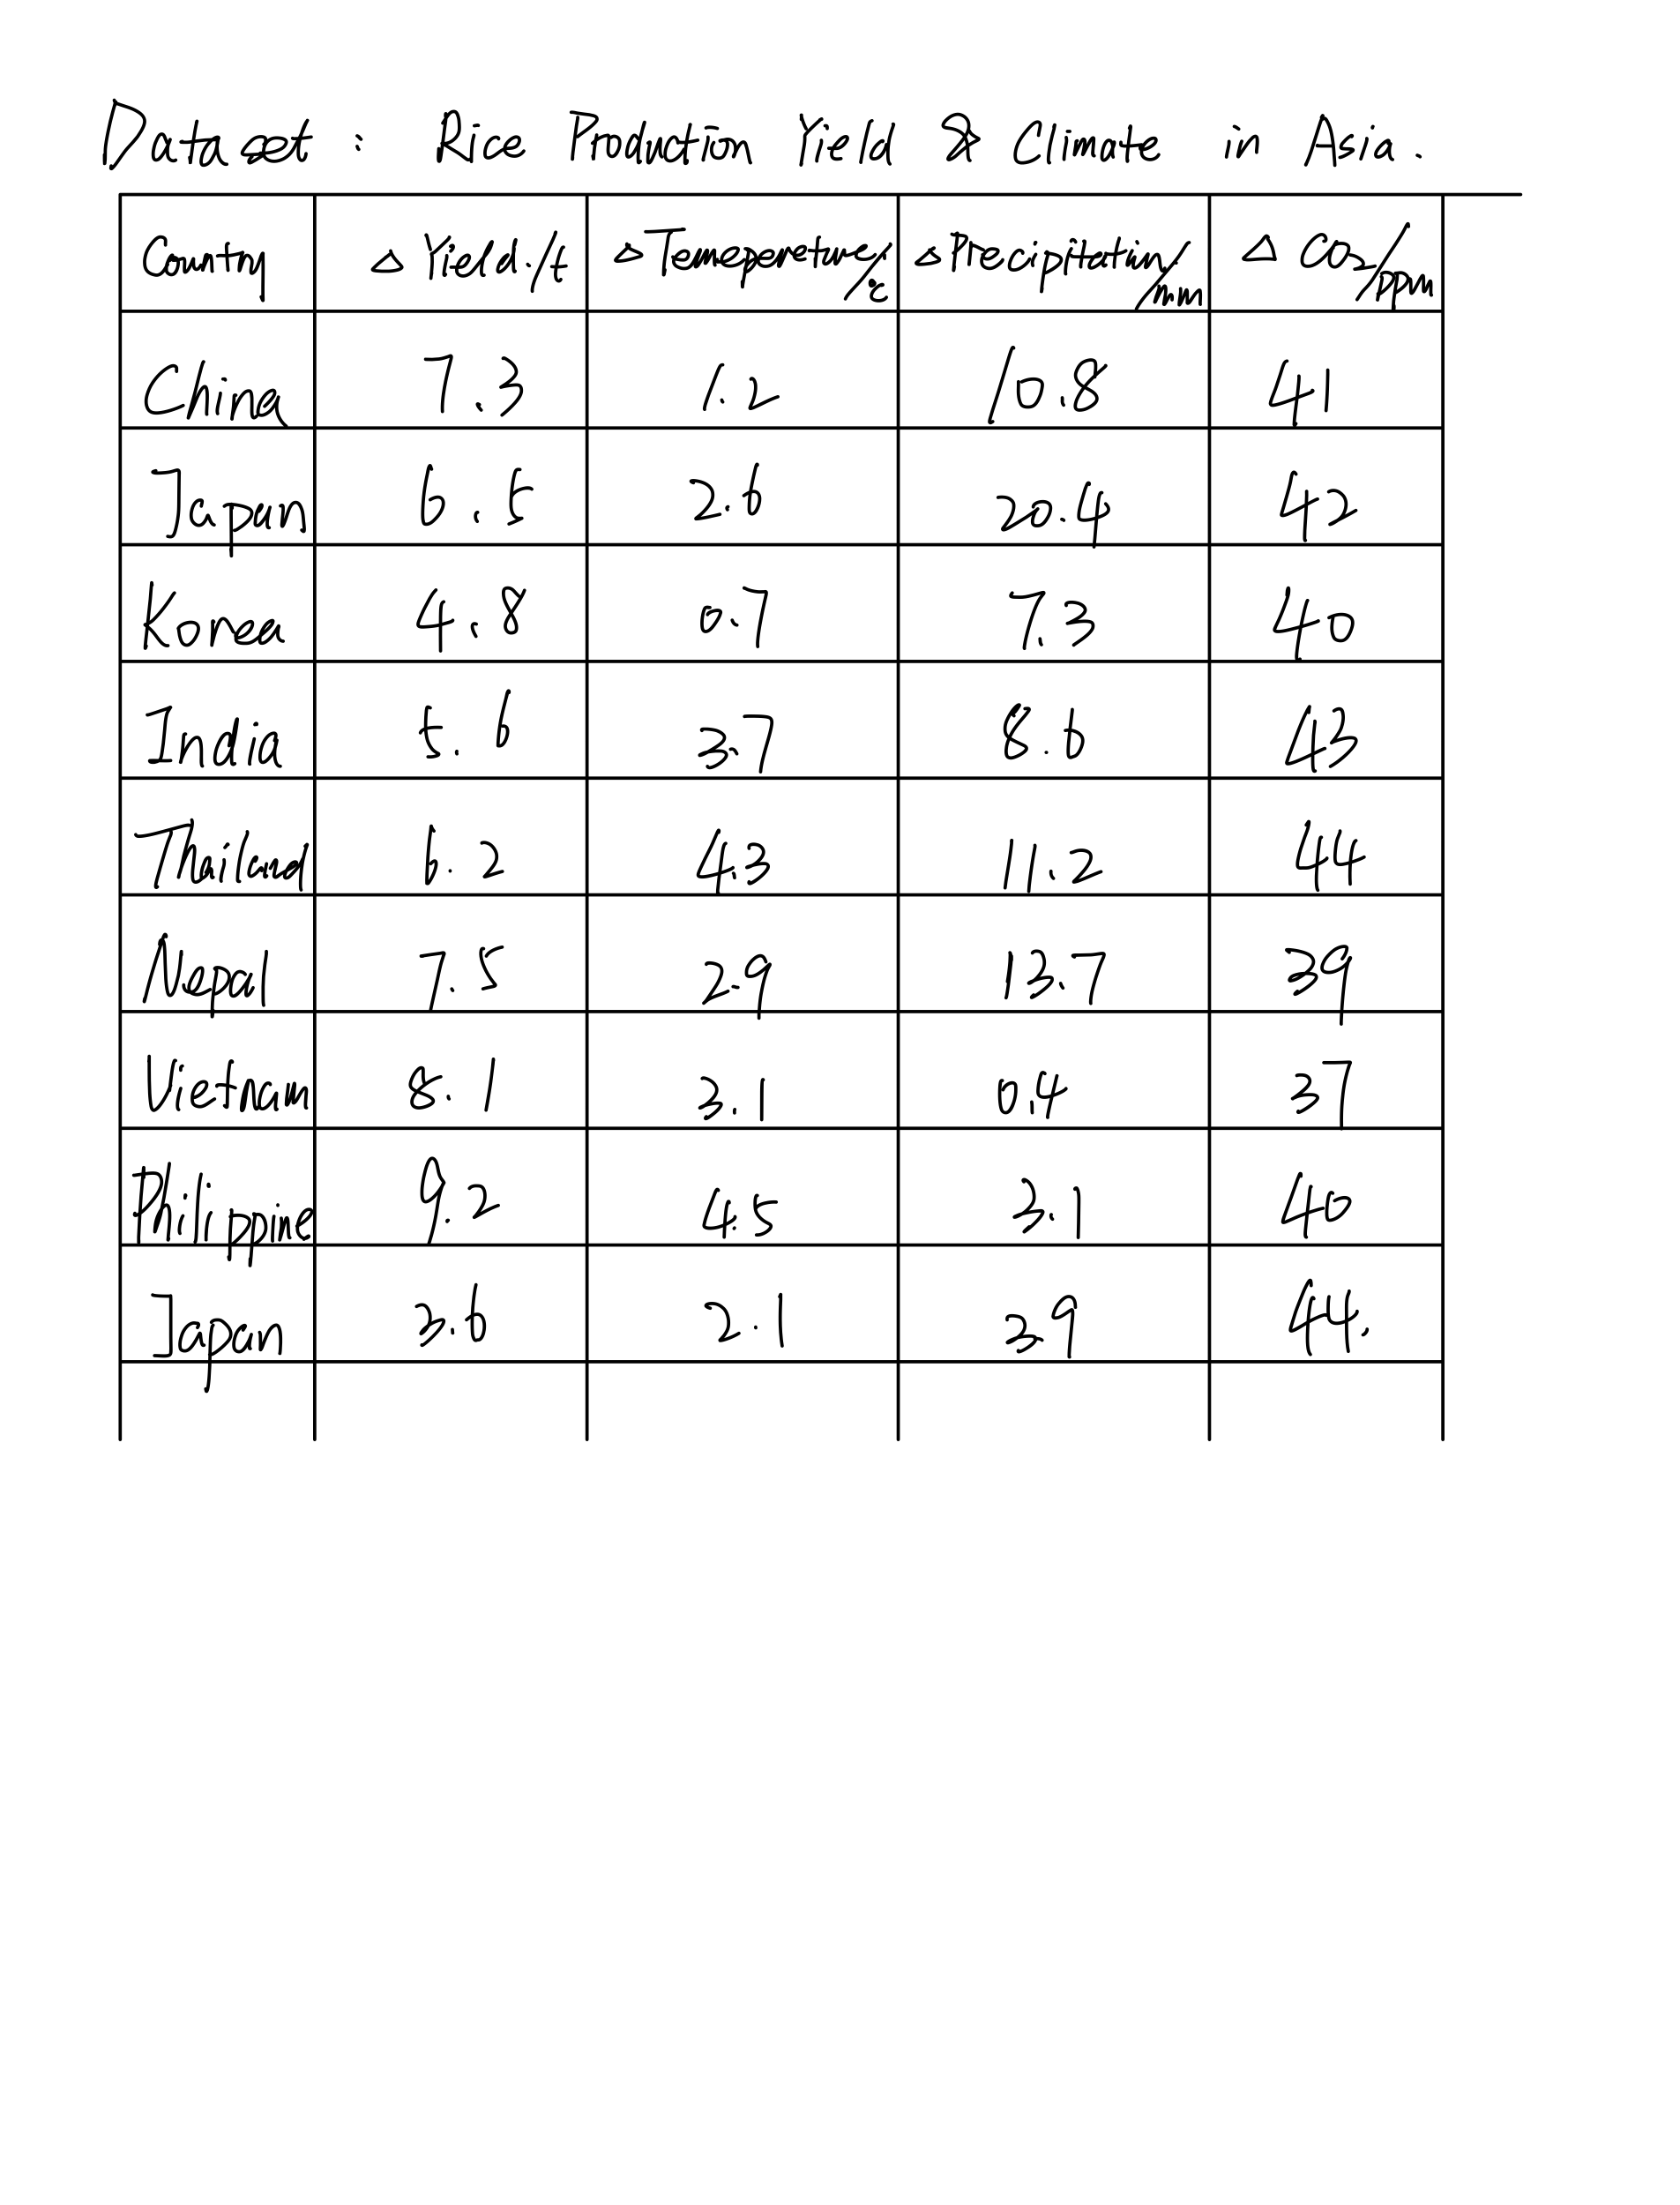 Dataset : Rice Prduction Yield & Climate in Asia.
Country △Yield./t △Temepreture/℃ △Precipitation/mm △CO2/ppm
China 7.3 1.2 10.8 41
Japan 6.5 2.6 20.4 42
Korea 4.8 0.7 7.3 40
India 5.6 3.7 8.6 43
Thailand 6.2 4.3 11.2 44
Nepal 7.5 2.9 13.7 39
Vietnam 8.1 3.1 0.4 37
Philippine 9.2 4.5 3.1 40
Japan 3.6 2.1 39 44.